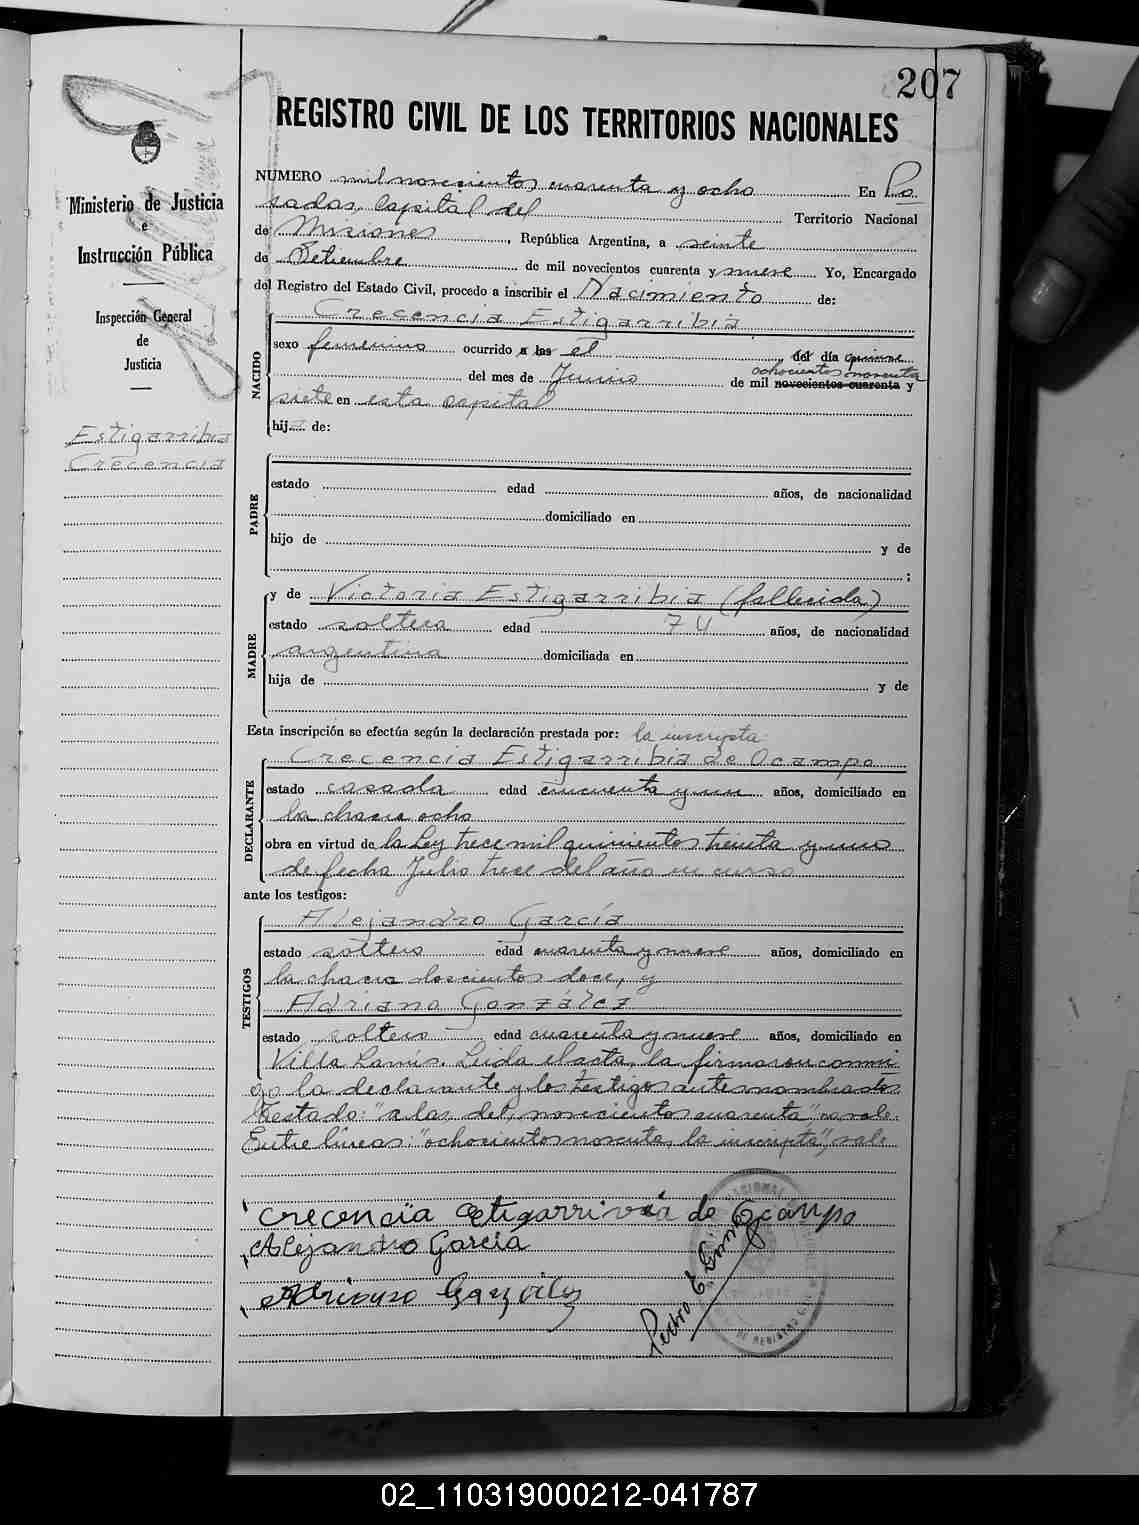 207
REGISTRO CIVIL DE LOS TERRITORIOS NACIONALES
Ministerio de Justicia
e
Instrucción Pública
Inspección General
de
Justicia
Estigarribia
Crecencia
NUMERO mil novecientos cuarenta y ocho En Po
sadas, Capital del Territorio Nacional
de Misiones, República Argentina, a veinte
de Setiembre de mil novecientos cuarenta y nueve Yo, Encargado
del Registro del Estado Civil, procedo a inscribir el Nacimiento de:
NACIDO
Crecencia Estigarribia
sexo femenino ocurrido a las el del día quince
ochocientos noventa
del mes de Junio de mil novecientos cuarenta y
siete en esta capital
hija de:
PADRE
estado edad años, de nacionalidad
domiciliado en
hijo de y de
;
MADRE
y de Victoria Estigarribia (fallecida)
estado soltera edad 74 años, de nacionalidad
argentina domiciliada en
hija de y de
Esta inscripción se efectúa según la declaración prestada por: la inscripta
DECLARANTE
Crecencia Estigarribia de Ocampo
estado casada edad cincuenta y un años, domiciliado en
la chacra ocho
obra en virtud de la Ley trece mil quinientos treinta y uno
de fecha Julio trece del año en curso
ante los testigos:
TESTIGOS
Alejandro García
estado soltero edad cuarenta y nueve años, domiciliado en
la chacra doscientos doce, y
Adriano González
estado soltero edad cuarenta y nueve años, domiciliado en
Villa Lanús. Leida el acta, la firmaron conmi
go la declarante y los testigos antes nombrados.
Testado: "a las, del, novecientos cuarenta" no vale.
Entre lineas: "ochocientos noventa, la inscripta", vale
Crecencia Estigarrivia de Ocampo
Alejandro García
Adriano Gonzalez
Pedro E.
02_110319000212-041787